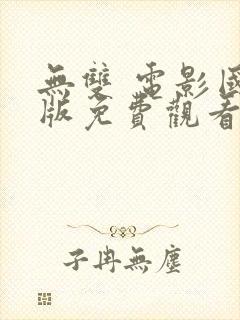 無雙 電影國
版免費觀看
子冉無塵